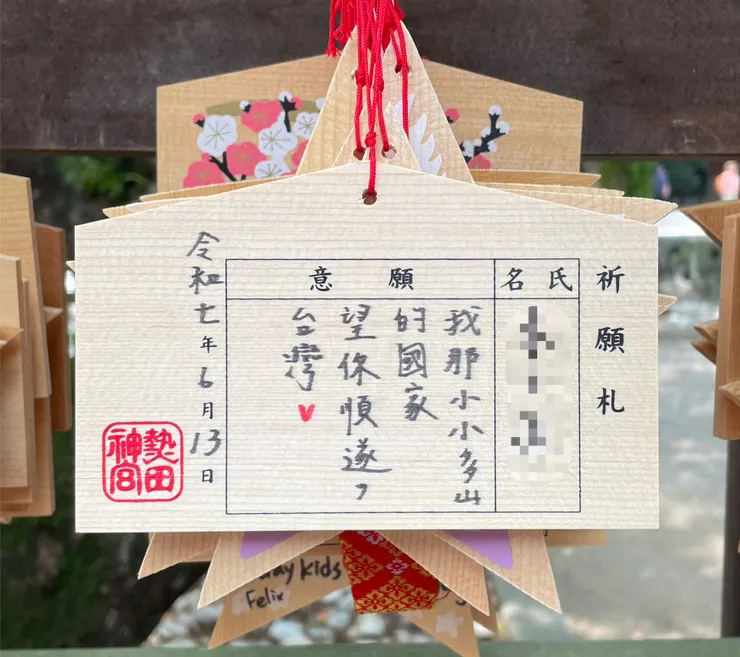 祈願札
氏名
願意
我那小小多山
的國家
望你順遂，
台灣♥
令和七年6月13日
熱田
神宮
Kids
Felix